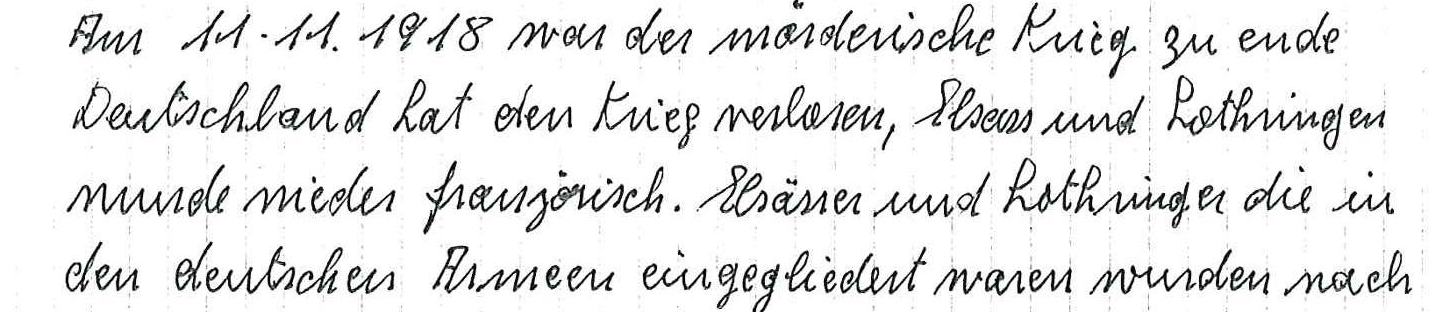 Am 11.11.1918 war der mörderische Krieg zu ende
Deutschland hat den Krieg verloren, Elsass und Lothringen
wurde wieder französisch. Elsässer und Lothringer die in
den deutschen Armeen eingegliedert waren wurden nach